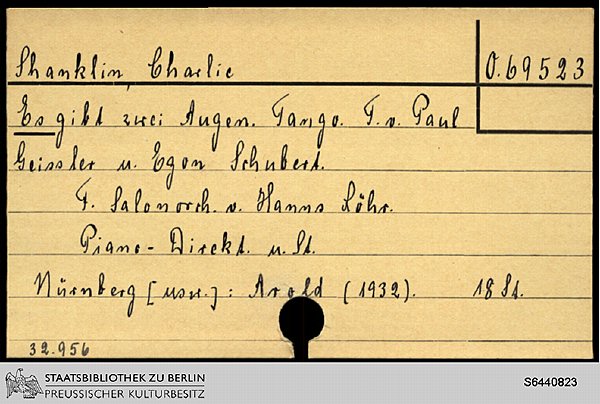 Shanklin, Charlie
O. 69523
Es gibt zwei Augen. Tango. T. v. Paul
Geissler u. Egon Schubert.
F. Salonorch. v. Hanns Löhr.
Piano-Direkt. u. St.
Nürnberg [usw.]: Arold (1932). 18 St.
32.956
STAATSBIBLIOTHEK ZU BERLIN
PREUSSISCHER KULTURBESITZ
S6440823